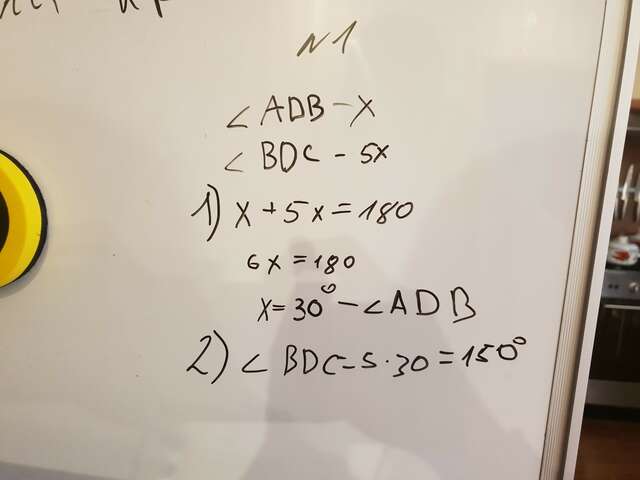 N1
∠ADB - x
∠BDC - 5x
1) x + 5x = 180
6x = 180
x = 30° - ∠ADB
2) ∠BDC - 5 · 30 = 150°